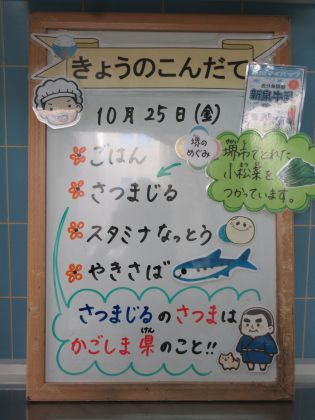 きょうのこんだて
10月25日(金)
ごはん
さつまじる
スタミナなっとう
やきさば
堺の
めぐみ
堺市でとれた
小松菜を
つかっています。
さつまじるのさつまは
かごしま県のこと!!